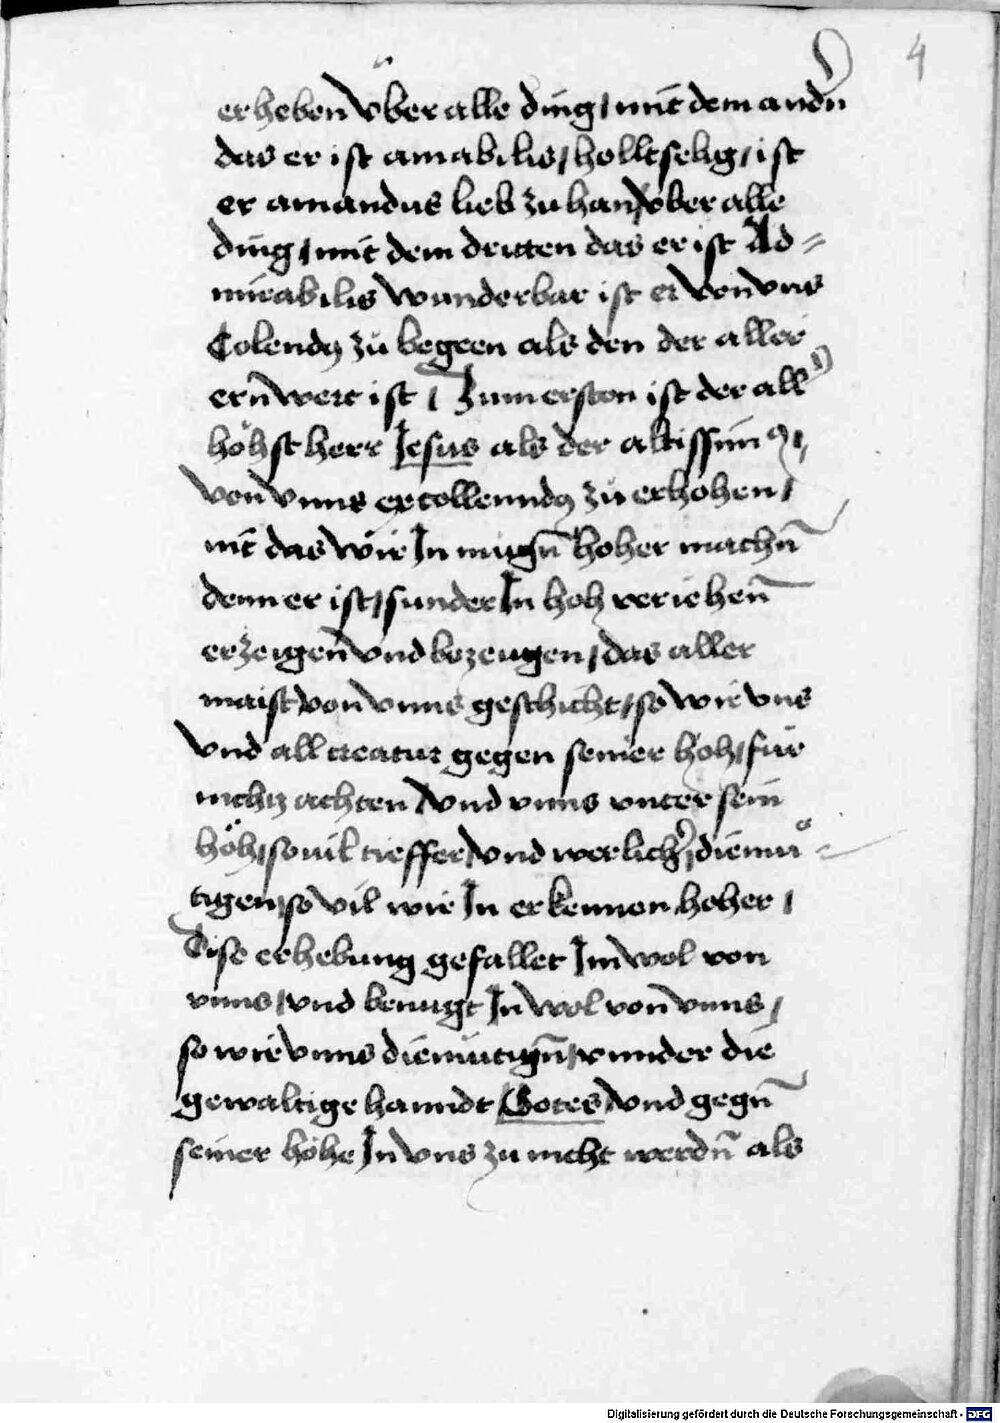 4
erheben vber alle ding / mit dem andn̄
das er ist amabilis / holltselig / ist
er amandus lieb zu han vber alle
ding / mit dem dritten das er ist Ad=
mirabilis wunderbar ist er von vns
Colendꝯ zů begeen als den der aller
ern̄wert ist / Zum ersten ist der all
höhst herr Jesus als der altissimꝯ /
von vnns extollenndꝯ zů erhohen /
nit das wir In mugn̄ hoher machn̄
denn er ist / sunder In hoh veriehen̄
erzeigen̄ vnd bezeugen / das aller
maist von vnns geschicht / so wir vns
vnd all creatur gegen seiner höh / für
nichtz achten vnd vnns vnter sein
höh / so vil tieffer vnd werlich / diemü
tigen / so vil wir In erkennen hoher /
Dise erhebung gefallet Im wol von
vnns / vnd benugt In wol von vnns /
so wir vnns diemütign̄ / vnnder die
gewaltige hanndt Gotes / vnd gegn̄
seiner höhe In vns zu nicht werdn̄ als
Digitalisierung gefördert durch die Deutsche Forschungsgemeinschaft - DFG